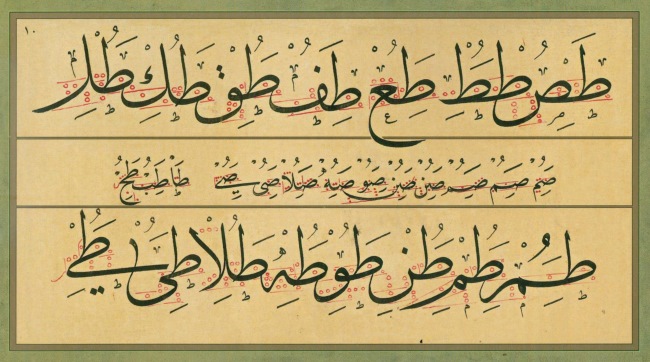 ١٠
طَصُ طَطُ طَعُ طَفُ طُقِ طُكِ
صم صم صم صن صن صو صه صلا صى صے طا طب طج
طِمُ طُمِ طُنِ طَوُ طُهِ طُلِا طِىُ طِےُ